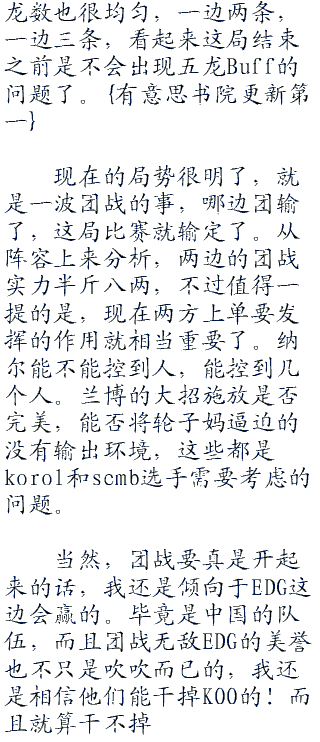 龙数也很均匀，一边两条，
一边三条，看起来这局结束
之前是不会出现五龙Buff的
问题了。{有意思书院更新第
一}
现在的局势很明了，就
是一波团战的事，哪边团输
了，这局比赛就输定了。从
阵容上来分析，两边的团战
实力半斤八两，不过值得一
提的是，现在两方上单要发
挥的作用就相当重要了。纳
尔能不能控到人，能控到几
个人。兰博的大招施放是否
完美，能否将轮子妈逼迫的
没有输出环境，这些都是
korol和scmb选手需要考虑的
问题。
当然，团战要真是开起
来的话，我还是倾向于EDG这
边会赢的。毕竟是中国的队
伍，而且团战无敌EDG的美誉
也不只是吹吹而已的，我还
是相信他们能干掉KOO的！而
且就算干不掉